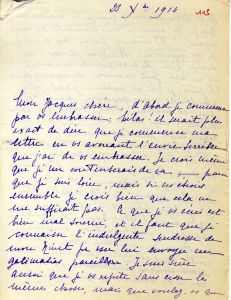 23 Xbre 1914
113
Mon Jacques chéri, d'abord je commence
par vs embrasser, hélas ! il serait plus
exact de dire que je commence ma
lettre en vs avouant l'envie terrible
que j'ai de vs embrasser. Je crois même
que je m'en contenterais
que je suis loin, mais si ns étions
ensemble je crois bien que cela ne
me suffirait pas. Ce que je vs écris est
bien mal tourné et il faut que je
connaisse l'indulgente tendresse de
mon Jacques pr oser lui envoyer un
galimatias pareil. Je suis sûre
aussi que je vs répète sans cesse les
mêmes choses, mais que voulez vs que